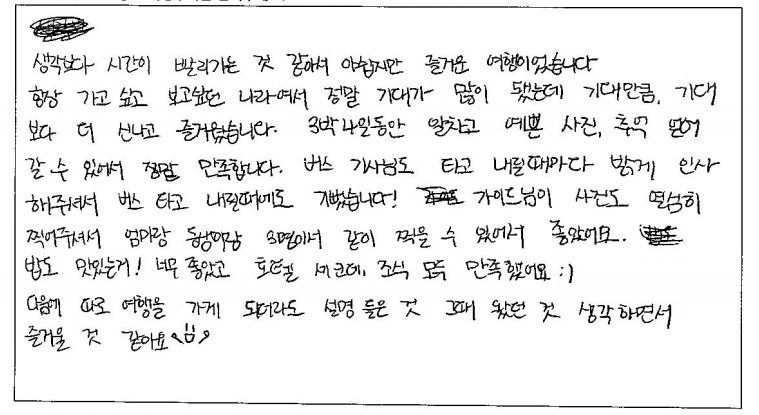 생각보다 시간이 빨리가는 것 같아서 아쉽지만 즐거운 여행이었습니다
항상 가고 싶고 보고싶던 나라여서 정말 기대가 많이 됐는데 기대만큼, 기대
보다 더 신나고 즐거웠습니다. 3박4일동안 알차고 예쁜 사진, 추억 얻어
갈 수 있어서 정말 만족합니다. 버스 기사님도 타고 내릴때마다 밝게 인사
해주셔서 버스 타고 내릴때에도 기뻤습니다! 가이드님이 사진도 열심히
찍어주셔서 엄마랑 동생이랑 3명이서 같이 찍을 수 있어서 좋았어요.
밥도 맛있는거! 너무 좋았고 호텔 세군데, 조식 모두 만족했어요 :)
다음에 따로 여행을 가게 되더라도 설명 들은 것 그때 왔던 것 생각하면서
즐거울 것 같아요